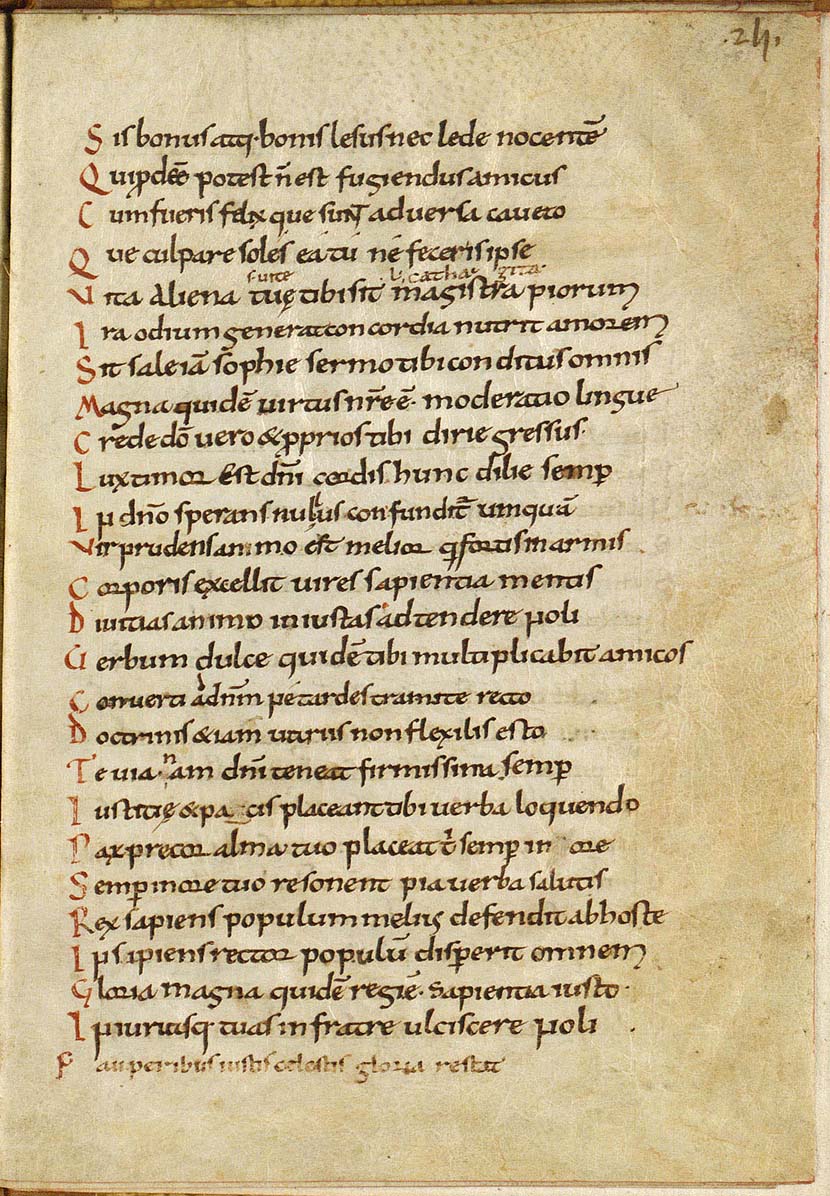 .24.
Sis bonus atq; bonis lesus nec lede nocentē
Qui pdeē potest n̄ est fugiendus amicus
Cum fueris felix que sunt adversa caveto
Que culpare soles ea tu ne feceris ipse
vite l' catha gita
Vita aliena tuę tibi sit magistra piorum
Ira odium generat concordia nutrit amorem
Sit sale iā sophie sermo tibi conditus omnis
Magna quidē virtus nr̄e ē· moderatio lingue
Crede dō vero & pprios tibi dirie gressus·
Lux timor est dn̄i cordis hunc dilie semp
Inp dn̄o sperans nullus confundit̄ umquā
Vir prudens animo est melior q̄ fortis in armis
Corporis excellit vires sapientia mentis
Divitias animo iniustas adtendere noli
Verbum dulce quidē tibi multiplicabit amicos
Converti ad dn̄m ne tardes tramite recto
Doctrinis & iam vitiis non flexilis esto
Te via nam dn̄i teneat firmissima semp
Iustitię & pacis placeant tibi verba loquendo
Pax precor alma tuo placeat t̄ semp in ore
Semp in ore tuo resonent pia verba salutis
Rex sapiens populum melius defendit ab hoste
Inpsapiens rector populū disperit omnem
Gloria magna quidē regi ē· sapientia iusto·
Iniuriasq; tuas in fratre ulciscere noli .
Pauperibus iustis celestis gloria restat